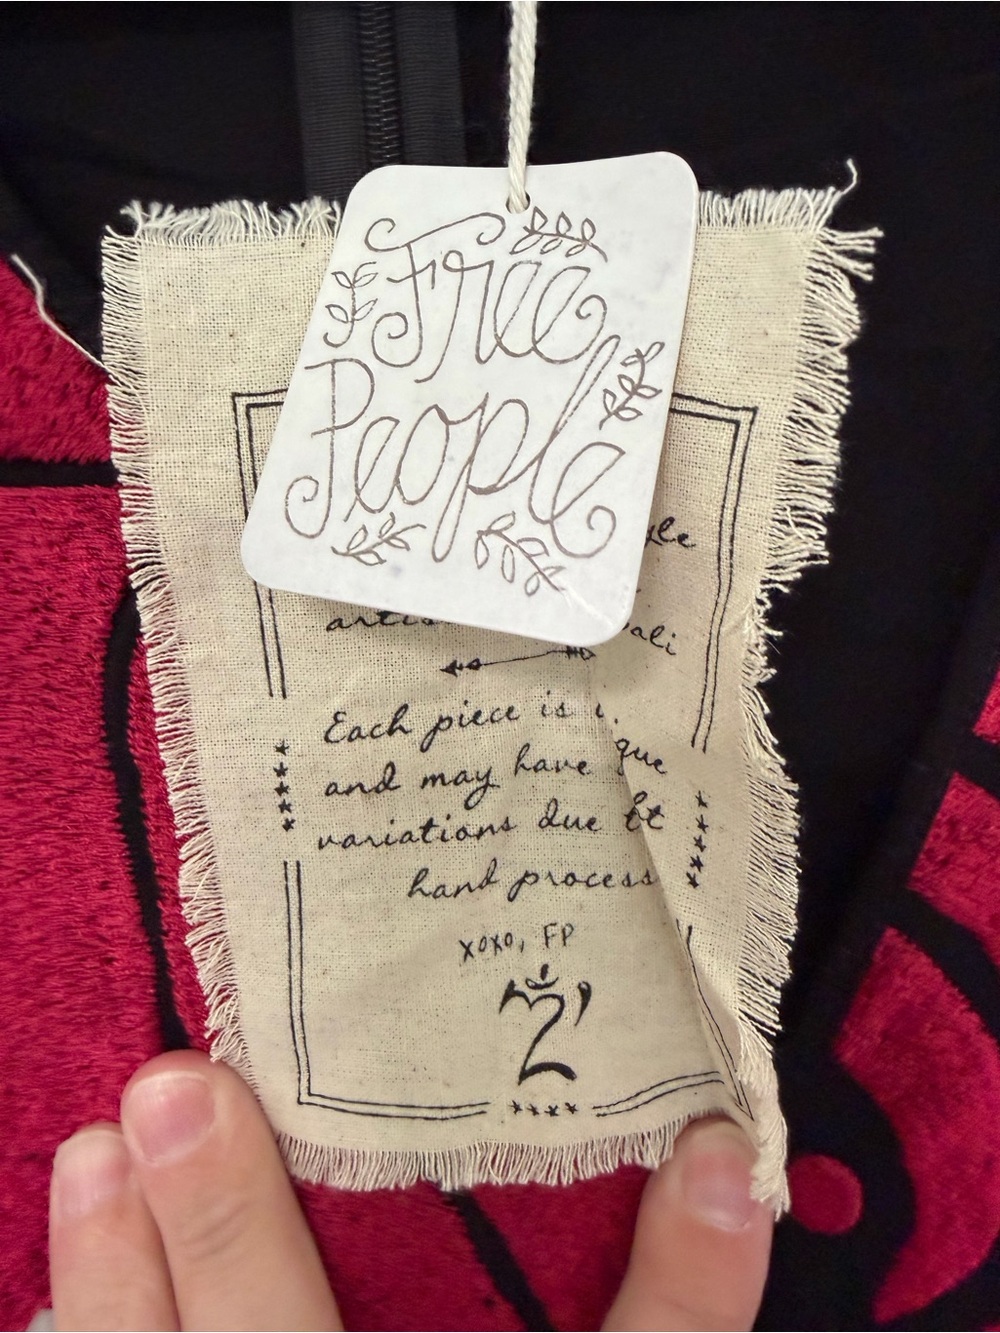 Free
People
Each piece is
and may have
variations due
hand process
xoxo, FP